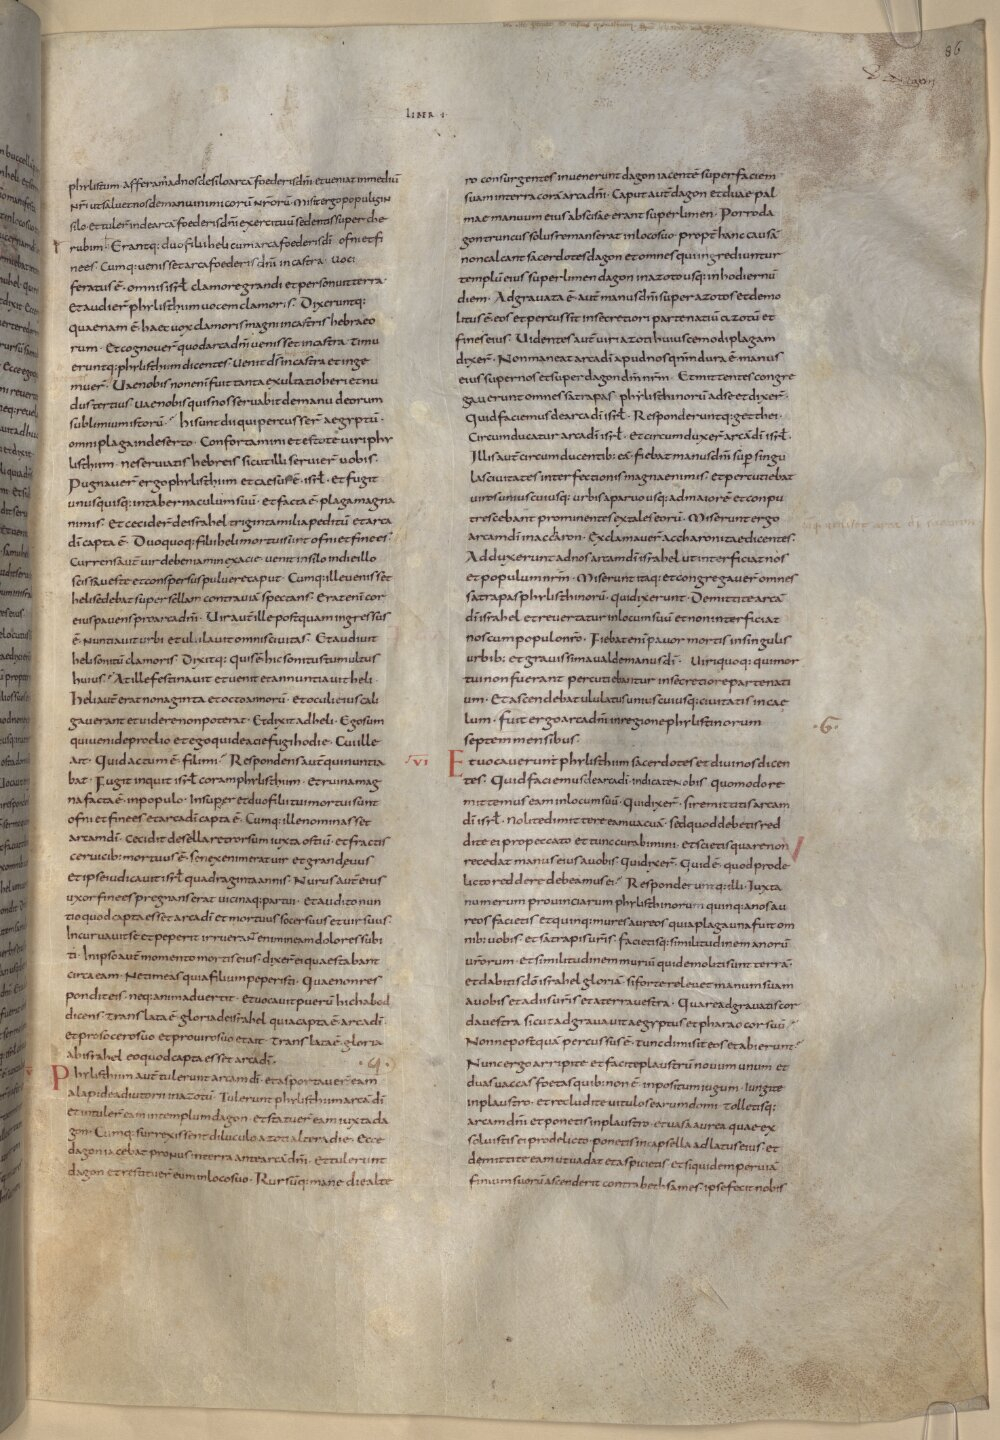 86
LIBER I
phylistim afferam adnos desilo arcā foederis dn̄i et veniat inmediū
nr̄i ut salvet nos demanu inimicorū nr̄orū. Misit ergo populus in
silo et tuler̄ inde arcā foederis dn̄i exercituū sedentis super che
rubim. Erantq; duo filii heli cum arca foederis dī ofni et fi
nees. Cumq; venisset arca foederis dn̄i in castra. voci
feratus ē omnis isrl̄ clamore grandi et personuit terra.
Et audier̄ phylisthiim vocem clamoris. Dixeruntq;
quaenam ē haec vox clamoris magni incastris hebraeo
rum. Et cognover̄ quod arca dn̄i venisset incastra. Timu
eruntq; phylisthiim dicentes. Venit dī incastra et inge
muer̄. Vae nobis non enī fuit tanta exultatio heri et nu
dus tertius vae nobis quis nos servabit demanu deorum
sublimium istorū. hi sunt dii qui percusser̄ aegyptū.
omni plaga indeserto. Confortamini et estote viri phy
listhiim. ne serviatis hebreis sicut illi servier̄ vobis.
Pugnaver̄ ergo phylisthiim et caesus ē isrl̄. et fugit
unusquisq; intabernaculum suū. et facta ē plaga magna
nimis. Et cecider̄ deisrahel triginta milia peditū et arca
dī capta ē. Duo quoq; filii heli mortui sunt ofni et finees.
Currens aut̄ vir debeniamin exacie. venit insilo indie illo
scissa veste et conspersus pulvere caput. Cumq; ille venisset
heli sedebat super sellam contra viā spectans. Erat enī cor
eius pavens pro arca dn̄i. Vir aut̄ ille postquam ingressus
ē. nuntiavit urbi et ululavit omnis civitas. Et audivit
heli sonitū clamoris. Dixitq; quis ē hic sonitus tumultus
huius. At ille festinavit et venit et annuntiavit heli.
Heli aut̄ erat nonaginta et octo annorū. et oculi eius cali
gaverant et videre non poterat. Et dixit ad heli. Ego sum
qui veni de proelio et ego qui deacie fugi hodie. Cui ille
ait. Quid actum ē fili mi. Respondens aut̄ qui nuntia
bat. Fugit inquit isrl̄ coram phylisthiim. et ruina mag
na facta ē inpopulo. Insuper et duo filii tui mortui sunt
ofni et finees et arca dī capta ē. Cumq; ille nominasset
arcam dī. cecidit desella retrorsum iuxta ostiū. et fractis
cervicib; mortuus ē. senex enim erat vir et grandevus
et ipse iudicavit isrl̄ quadraginta annis. Nurus aut̄ eius
uxor finees pregnans erat vicinaq; partui. et audito nun
tio quod capta esset arca dī et mortuus socer suus et vir suus.
Incurvavit se et peperit irruerant enim in eam dolores subi
ti. In ipso aut̄ momento mortis eius. dixer̄ ei quae stabant
circa eam. Ne timeas quia filium peperisti. Quae non res
pondit eis. neq; animadvertit. Et vocavit puerū hichabod
dicens. Translata ē gloria deisrahel quia capta ē arca dī
et pro socero suo et pro viro suo et ait. Translata ē gloria
abisrahel eo quod capta esset arca dī.
V
Phylisthiim aut̄ tulerunt arcam dī. et asportaver̄ eam
alapide adiutorii inazotū. Tulerunt phylisthiim arcā dī
et intuler̄ eam intemplum dagon. et statuer̄ eam iuxta da
gon. Cumq; surrexissent diluculo azotii altera die. Ecce
dagon iacebat pronus interra ante arcā dn̄i. et tulerunt
dagon et restituer̄ eum inloco suo. Rursūq; mane die alte
ro consurgentes invenerunt dagon iacentē super faciem
suam interra cora arca dn̄i. Caput aut̄ dagon et duae pal
mae manuum eius abscisae erant super limen. Porro da
gon truncus solus remanserat inloco suo. propt̄ hanc causā
non calcant sacerdotes dagon et omnes qui ingrediuntur
templū eius super limen dagon inazoto usq; inhodiernū
diem. Adgravata ē aut̄ manus dn̄i super azotos et demo
litus ē eos et percussit insecretiori parte natiū azotū et
fines eius. Videntes aut̄ viri azotii huiuscemodi plagam
dixer̄. Non maneat arca dī apud nos qm̄ dura ē manus
eius super nos et super dagon dm̄ nr̄m. Et mittentes congre
gaverunt omnes satrapas phylisthinorū ad se et dixer̄.
Quid faciemus de arca dī isrl̄. Responderuntq; getthei.
Circumducatur arca dī isrl̄. et circumduxer̄ arcā dī isrl̄.
Illis aut̄ circumducentib; eā. fiebat manus dn̄i sup̄ singu
las civitates interfectionis magnae nimis. et percutiebat
viros uniuscuiusq; urbis aparvo usq; ad maiorē. et conpu
trescebant prominentes extales eorū. Miserunt ergo
arcam dī inaccaron. Exclamaver̄ accharonitae dicentes.
Adduxerunt ad nos arcam dī israhel ut interficiat nos
et populum nr̄m. Miserunt itaq; et congregaver̄ omnes
satrapas phylisthinorū. qui dixerunt. Demittite arcā
dī israhel et revertatur inlocum suū et non interficiat
nos cum populo nr̄o. Fiebat enī pavor mortis insingulis
urbib; et gravissima valde manus dī. Viri quoq; qui mor
tui non fuerant percutiebantur insecretiore parte nati
um. Et ascendebat ululatus uniuscuiusq; civitatis incae
lum. fuit ergo arca dn̄i inregione phylistinorum
septem mensibus.
.6.
VI
Et vocaverunt phylisthiim sacerdotes et divinos dicen
tes. Quid faciemus de arca dī indicate nobis quomodo re
mittemus eam inlocum suū. Qui dixer̄. si remittitis arcam
dī isrl̄. nolite dimittere eam vacuā. sed quod debetis red
dite ei pro peccato et tunc curabimini. et scietis quare non
recedat manus eius avobis. Qui dixer̄. Quid ē quod pro de
licto reddere debeamus ei. Responderuntq; illi. Iuxta
numerum provinciarum phylisthinorum quinq; anos au
reos facietis et quinq; mures aureos quia plaga una fuit om
nib; vobis et satrapis vr̄is. facietisq; similitudinem anorū
vr̄orum. et similitudinem muriū qui demoliti sunt terrā.
et dabitis dō israhel gloriā. si forte relevet manum suam
avobis et adiis vr̄is et aterra vestra. Quare adgravatis cor
da vestra sicut adgravavit aegyptus et pharao cor suū.
Nonne postquā percussus ē. tunc dimisit eos et abierunt.
Nunc ergo arripite et facite plaustrū novum unum et
duas vaccas foetas quib; non ē inpositum iugum. Iungite
inplaustro. et recludite vitulos earum domi. Tolletisq;
arcam dn̄i et ponetis inplaustro. et vasa aurea quae ex
solvistis ei pro delicto ponetis incapsella ad latus eius. et
demittite eam ut vadat et aspicietis. et siquidem per viā
finium suorū ascenderit contra bethsames. ipse fecit nobis